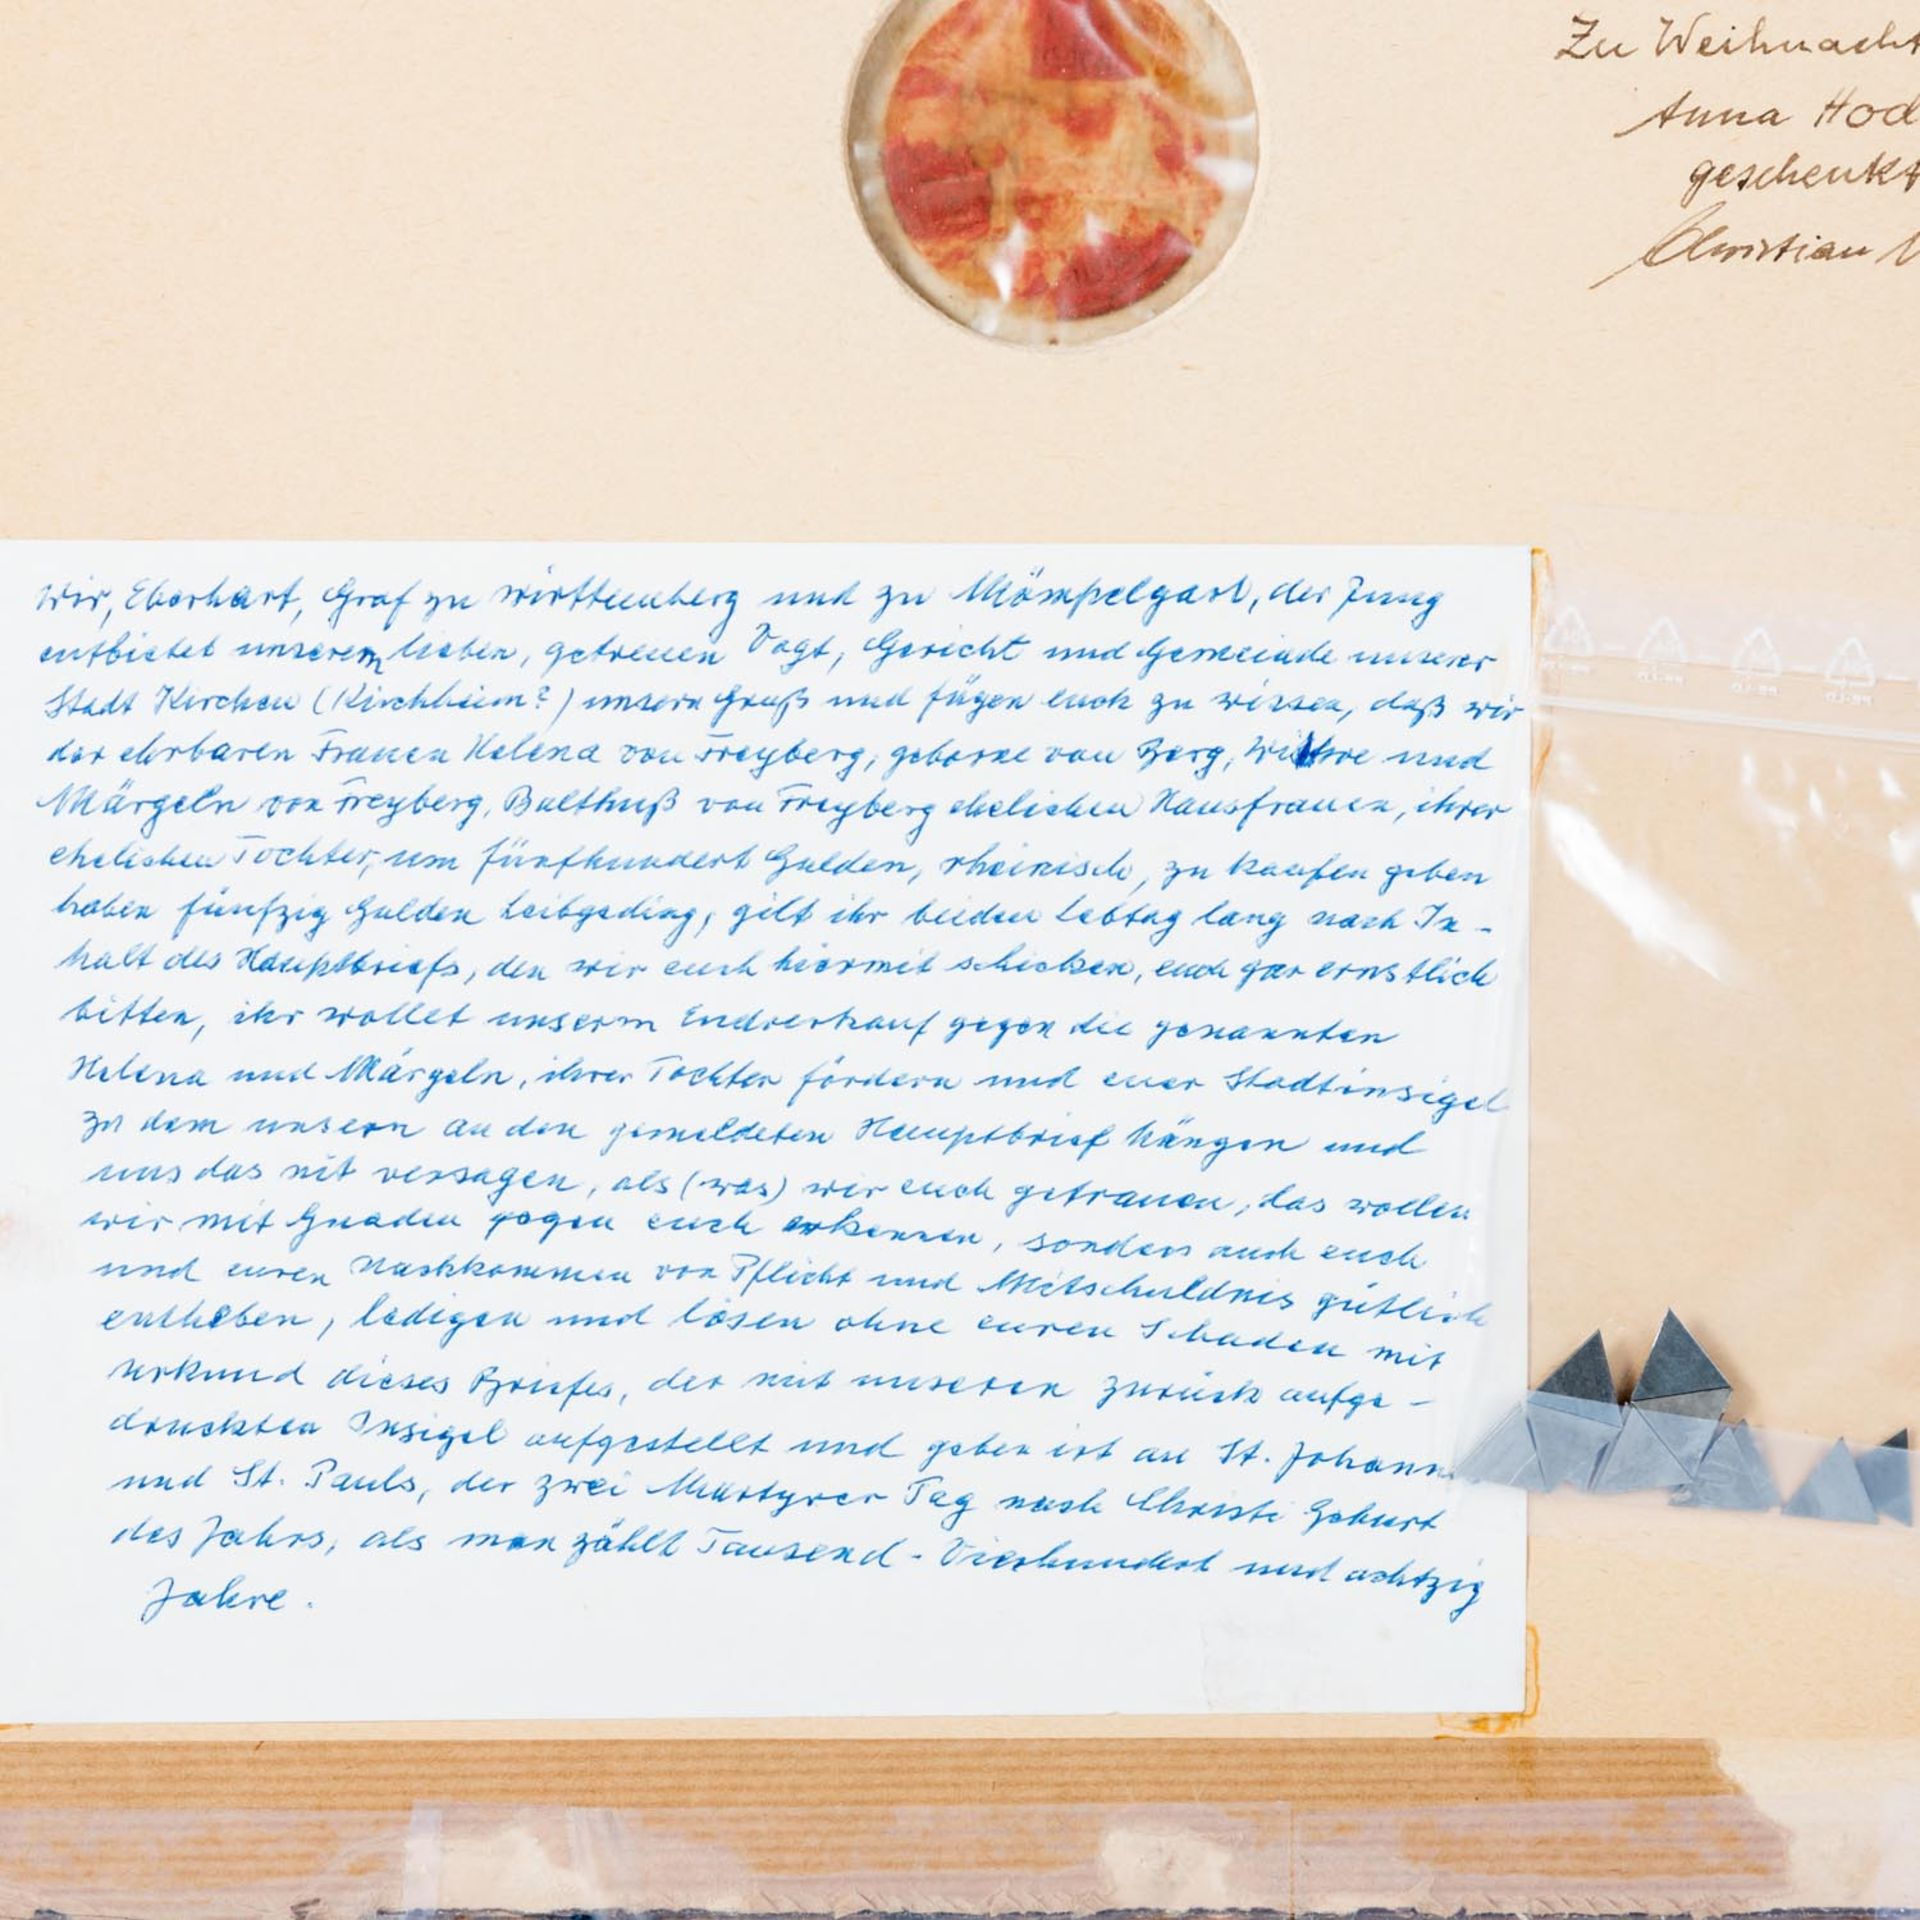 Zu Weihnacht
Anna Hod
geschenkt
Christian
Wir, Eberhart, Graf zu Württemberg und zu Mömpelgart, der Jung
entbietet unserem lieben, getreuen Vogt, Gericht und Gemeinde unserer
Stadt Kirchen (Kirchheim?) unsern Gruß und fügen euch zu wissen, daß wir
der ehrbaren Frauen Helena von Freyberg, geborne von Berg, Witwe und
Märgeln von Freyberg, Balthuß von Freyberg ehelichen Hausfrauen, ihrer
ehelichen Tochter, um fünfhundert Gulden, rheinisch, zu kaufen geben
haben fünfzig Gulden Leibgeding, gilt ihr beiden Lebtag lang nach In-
halt des Hauptbriefs, den wir euch hiermit schicken, euch gar ernstlich
bitten, ihr wollet unserm Endverkauf gegen die genannten
Helena und Märgeln, ihrer Tochter fördern und euer Stadtinsigel
zu dem unsern an den gemeldeten Hauptbrief hängen und
uns das nit versagen, als (was) wir euch getrauen, das wollen
wir mit Gnaden gegen euch erkennen, sondern auch euch
und euren Nachkommen von Pflicht und Mitschuldnis gütlich
entheben, ledigen und lösen ohne euren Schaden mit
urkund dieses Briefes, der mit unseren zurück aufge-
druckten Insigel aufgestellt und geben ist an St. Johann
und St. Pauls, der zwei Martyrer Tag nach Christi Geburt
des Jahrs, als man zählt Tausend-Vierhundert und achtzig
Jahre.